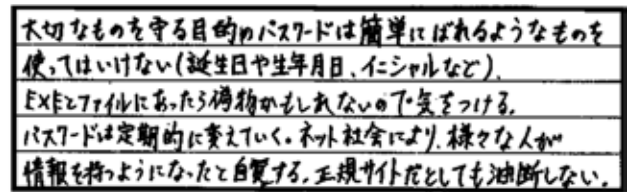 大切なものを守る目的のパスワードは簡単にばれるようなものを
使ってはいけない(誕生日や生年月日、イニシャルなど)。
EXEとファイルにあったら偽物かもしれないので気をつける。
パスワードは定期的に変えていく。ネット社会により、様々な人が
情報を持つようになったと自覚する。正規サイトだとしても油断しない。